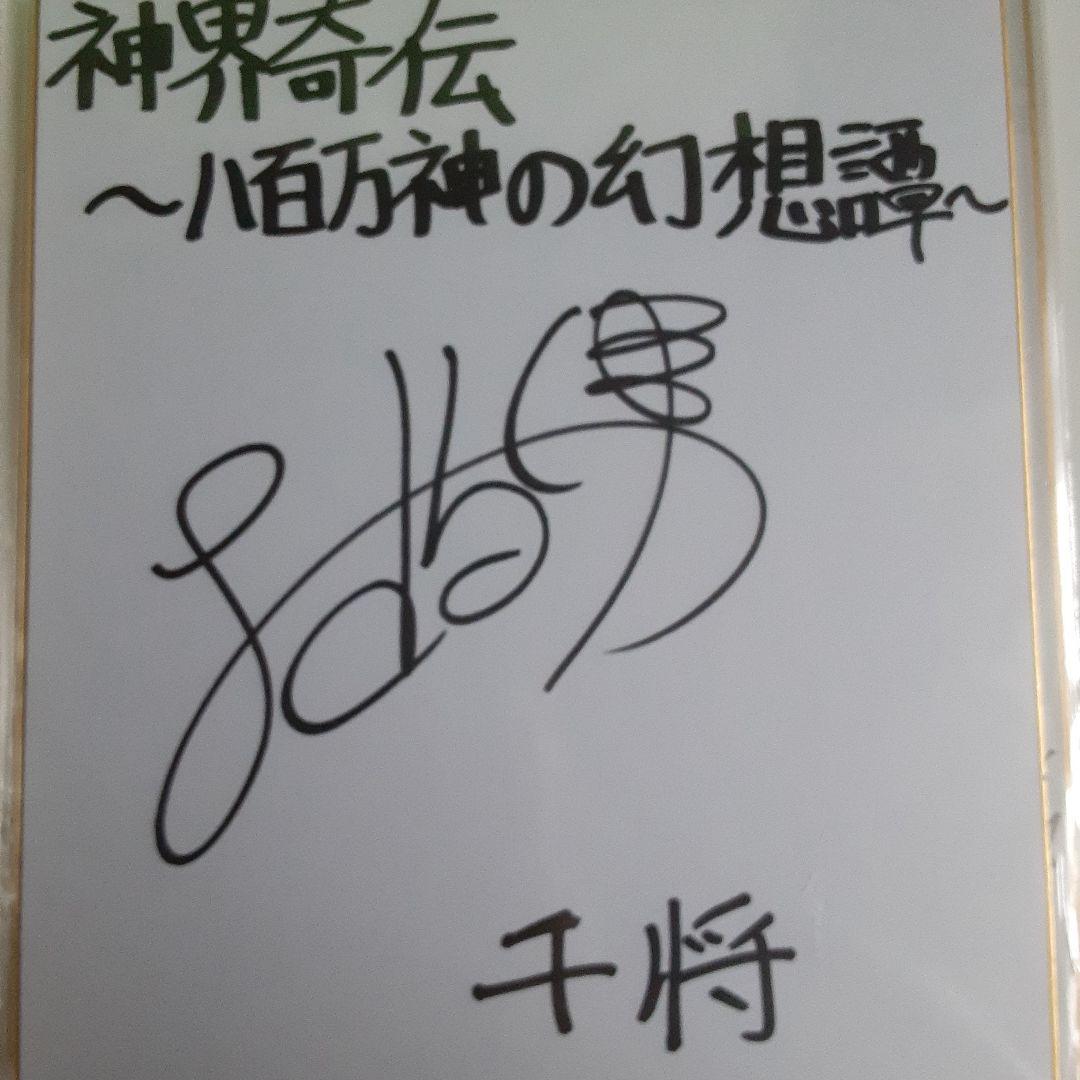 神界奇伝
～八百万神の幻想譚～
千将